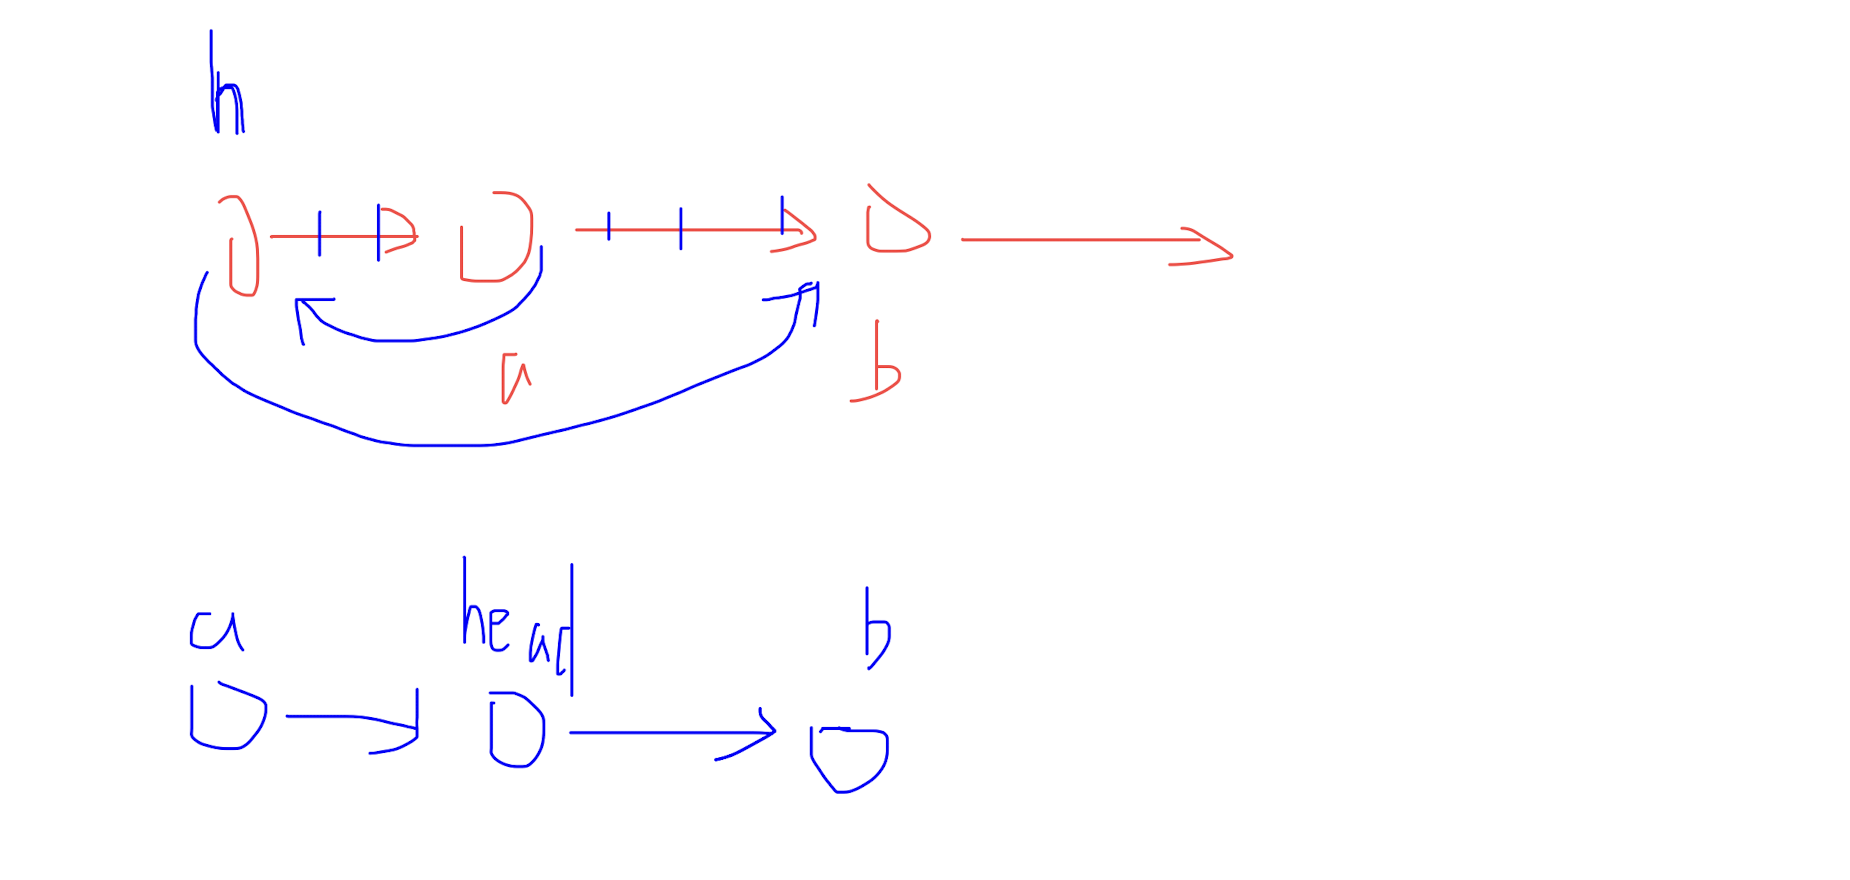 h
a
b
a head b